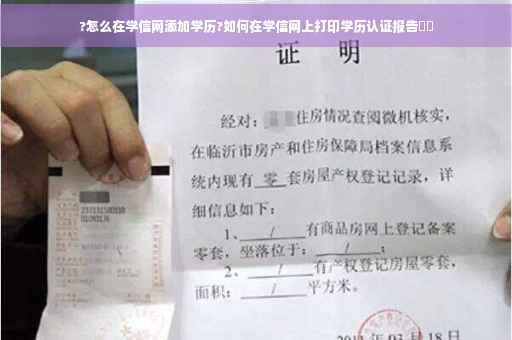 ?怎么在学信网添加学历?如何在学信网上打印学历认证报告
证 明
经对：住房情况查阅微机核实，
在临沂市房产和住房保障局档案信息系
统内现有 零 套房屋产权登记记录，详
细信息如下：
1、 / 有商品房网上登记备案
零套，坐落位于： / ；
2、 / 有产权登记房屋零套，
面积： / 平方米。
03 月 18 日